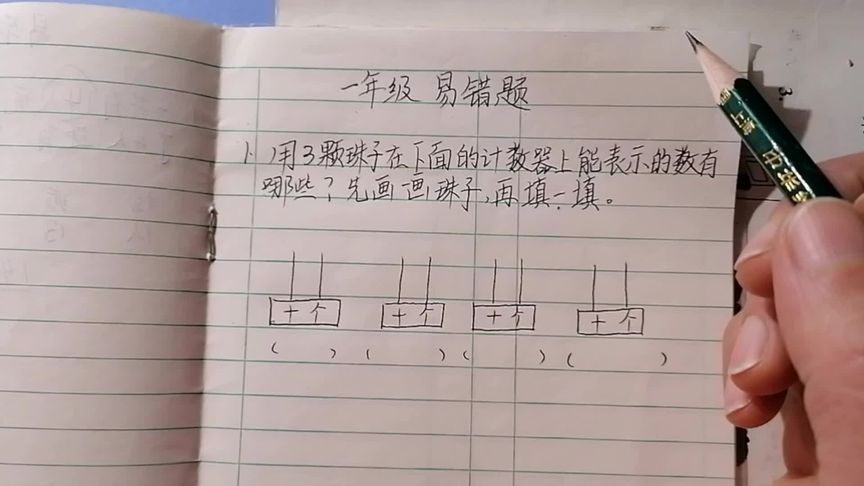 一年级 易错题
1. 用3颗珠子在下面的计数器上能表示的数有
哪些？先画一画珠子，再填一填。
十 个 十 个 十 个 十 个
( ) ( ) ( ) ( )
上海 中华